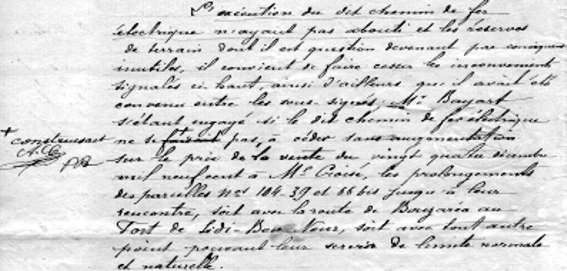 L'exécution du dit chemin de fer
électrique n'ayant pas abouti et les réserves
de terrain dont il est question devenant par conséquent
inutiles, il convient de faire cesser les inconvénients
signalés en haut, ainsi d'ailleurs qu'il avait été
convenu entre les sous-signés, Mr Bayart
s'étant engagé si le dit chemin de fer électrique
+ construisait
ne se faisait pas, à céder sans augmentation
sur le prix de la vente du vingt quatre décembre
mil neuf cent à Mr Croise, les prolongements
des parcelles Nos 104-39 et 55 bis jusqu'à leur
rencontre, soit avec la route de Bouzaréa au
Fort de Sidi-Bou-Nour, soit avec tout autre
point pouvant leur servir de limite normale
et naturelle.